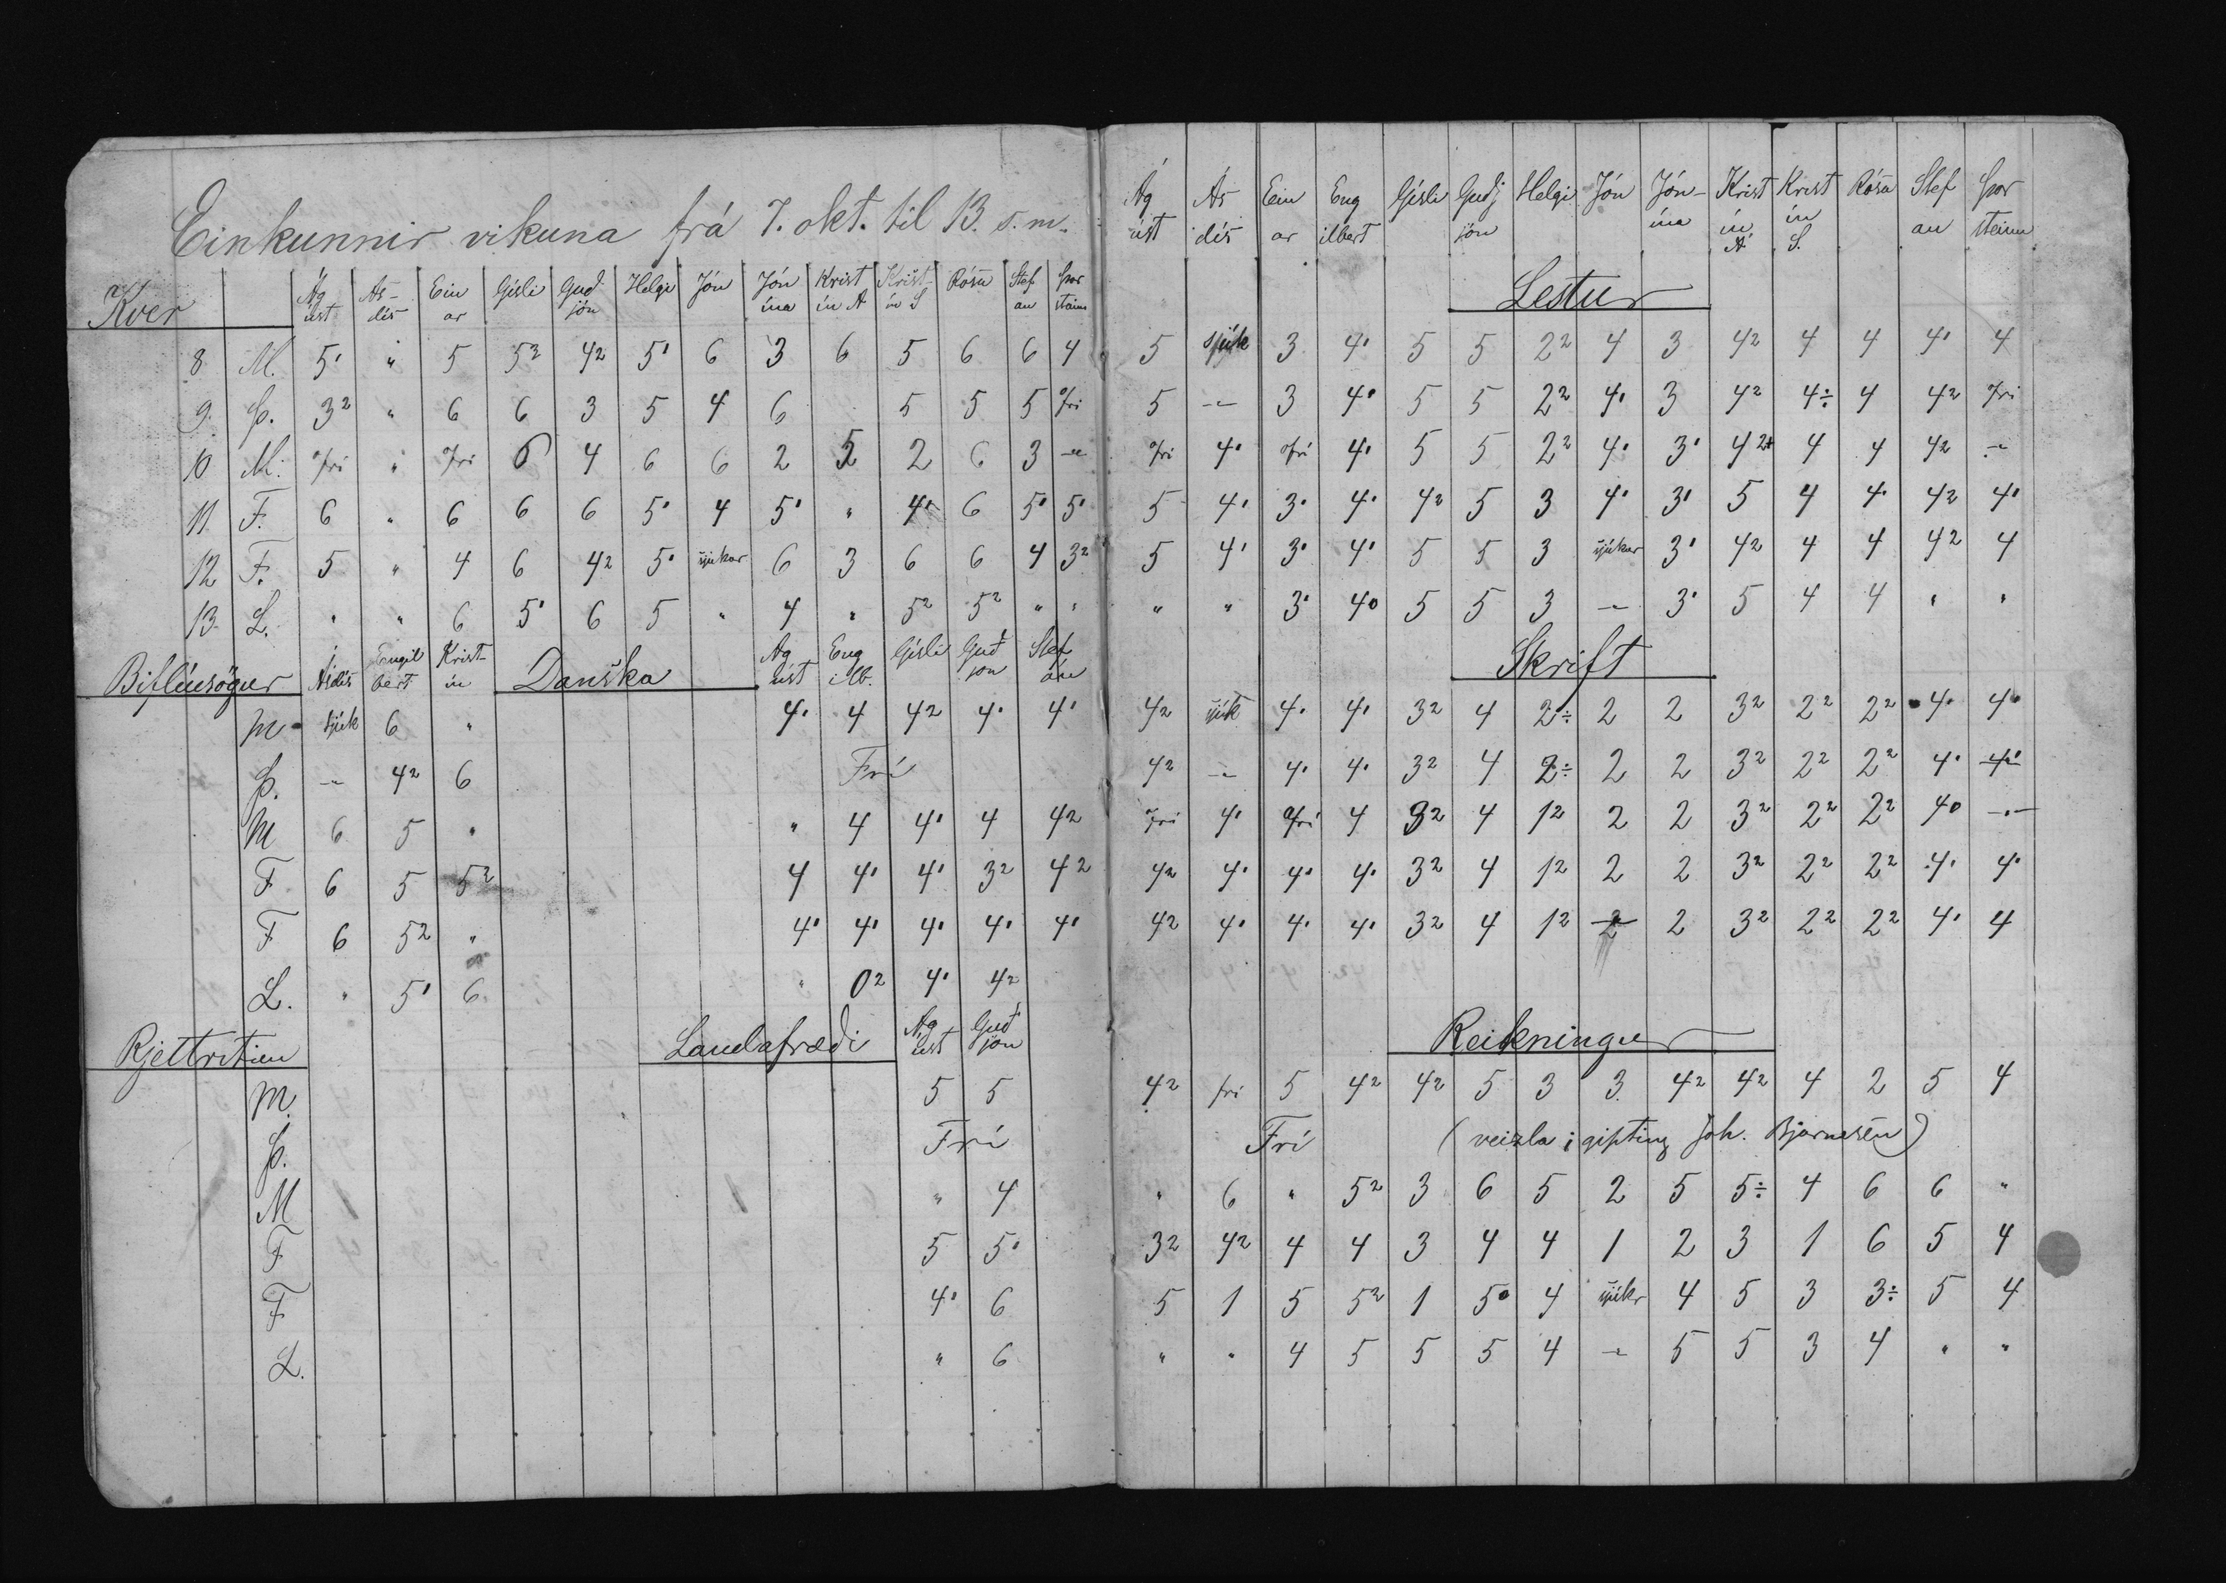 Einkunnir vikuna frá 7. okt. til 13. s.m.
Kver Ág úst Ás- dís Ein ar Gísli Guð jón Helgi Jón Jón ína Krist ín A Krist ín S Rósa Stef an Þor steinn
8. M. 5' " 5 5² 4² 5' 6 3 6 5 6 6 4
9. Þ. 3² " 6 6 3 5 4 6 5 5 5 Frí
10 M. Frí " Frí 6 4 6 6 2 5 2 6 3 -"-
11. F. 6 " 6 6 6 5' 4 5' " 4' 6 5' 5'
12 F. 5 " 4 6 4² 5' sjúkar 6 3 6 6 4 3²
13. L. " " 6 5' 6 5 " 4 " 5² 5² " "
Biflíusögur Ásdís Engil bert Krist- ín Danska Ág úst Eng ilb. Gísli Guð jon Stef án
M sjúk 6 " 4' 4 4² 4' 4'
Þ. -"- 4² 6 Frí
M 6 5 " " 4 4' 4 4²
F 6 5 5² 4 4' 4' 3² 4²
F 6 5² " 4' 4' 4' 4' 4'
L. " 5' 6 " 0² 4' 4²
Rjettritun Landafræði Ág úst Guð jón
M. 5 5
Þ. Frí
M " 4
F 5 5'
F 4' 6
L. " 6
Ág úst Ás dís Ein ar Eng ilbert Gísli Guðj jón Helgi Jón Jón- ína Krist ín A Krist ín S. Rósa Stef an Þor steinn
Lestur
5 sjúk 3 4' 5 5 2² 4 3 4² 4 4 4' 4
5 -"- 3 4' 5 5 2² 4' 3 4² 4÷ 4 4² Frí
Frí 4' Frí 4' 5 5 2² 4' 3' 4²+ 4 4 4² -"-
5 4' 3' 4' 4² 5 3 4' 3' 5 4 4' 4² 4'
5 4' 3' 4' 5 5 3 sjúkar 3' 4² 4 4 4² 4
" " 3' 4' 5 5 3 -"- 3' 5 4 4 " "
Skrift
4² sjúk 4' 4' 3² 4 2÷ 2 2 3² 2² 2² 4' 4'
4² -"- 4' 4' 3² 4 2÷ 2 2 3² 2² 2² 4' 4'
Frí 4' Frí 4 3² 4 1² 2 2 3² 2² 2² 4' -"-
4² 4' 4' 4' 3² 4 1² 2 2 3² 2² 2² 4' 4'
4² 4' 4' 4' 3² 4 1² 2 2 3² 2² 2² 4' 4
Reikningur
4² frí 5 4² 4² 5 3 3 4² 4² 4 2 5 4
Frí (veizla i gifting Joh. Bjarnesen)
" 6 " 5² 3 6 5 2 5 5÷ 4 6 6 "
3² 4² 4 4 3 4 4 1 2 3 1 6 5 4
5 1 5 5² 1 5' 4 sjúkr 4 5 3 3÷ 5 4
" " 4 5 5 5 4 -"- 5 5 3 4 " "